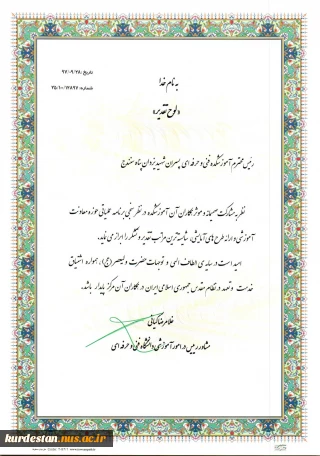 تاریخ: ۹۷/۰۹/۲۸
شماره: ۲۵/۱۰/۱۷۸۹۷
به نام خدا
«لوح تقدیر»
رئیس محترم آموزشکده فنی و حرفه ای پسران شهید یزدان پناه سنندج
نظر به مشارکت صمیمانه و موثر همکاران آن آموزشکده در نظرسنجی برنامه عملیاتی حوزه معاونت
آموزشی و ارائه طرح های آمایشی، شایسته ترین مراتب تقدیر و تشکر را ابراز می نماید.
امید است در سایه ی الطاف الهی و توجهات حضرت ولیعصر (عج)، همواره اشتیاق
خدمت و تعهد در نظام مقدس جمهوری اسلامی ایران در همکاران آن مرکز پایدار باشد.
غلامرضا کیانی
مشاور رییس در امور آموزشی دانشگاه فنی و حرفه ای
kurdestan.nus.ac.ir